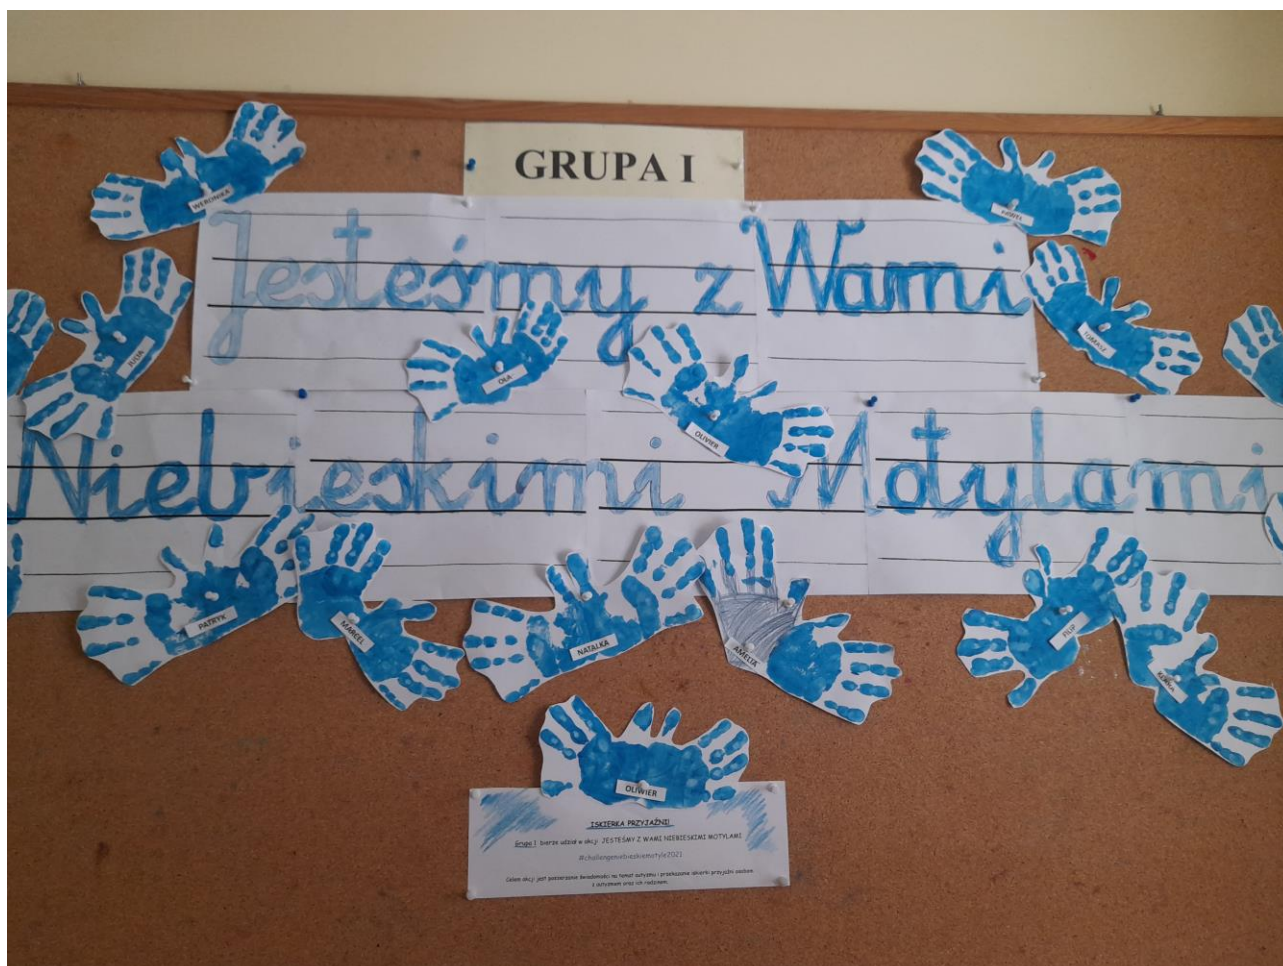 GRUPA I
WERONIKA
Jesteśmy z Wami
JULIA
TOMASZ
OLA
OLIVIER
Niebieskimi Motylami
PATRYK
MARCEL
NATALKA
AMELIA
FILIP
OLIWIER
ISKIERKA PRZYJAŹNI!
Grupa I bierze udział w akcji JESTEŚMY Z WAMI NIEBIESKIMI MOTYLAMI
#challengeniebieskiemotyle2021
Celem akcji jest poszerzanie świadomości na temat autyzmu i przekazanie iskierki przyjaźni osobom
z autyzmem oraz ich rodzinom.